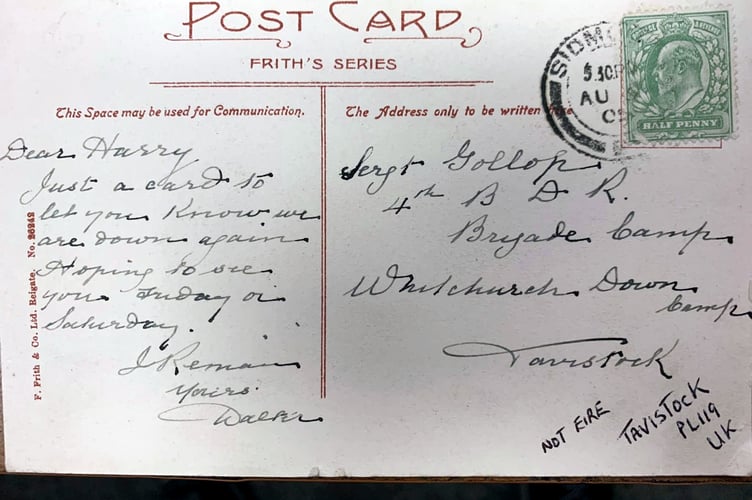 POST CARD
FRITH'S SERIES
This Space may be used for Communication.
The Address only to be written
Dear Harry
Just a card to
let you Know we
are down again
Hoping to see
you Friday or
Saturday.
I Remain
Yours
Walter
F. Frith & Co. Ltd. Reigate. No. 26242
SIDM
5.30P
AU
HALF PENNY
Sergt Gollop
4th B D R.
Brigade Camp
Whitchurch Down
Camp
Tavistock
NOT EIRE
TAVISTOCK
PL119
UK